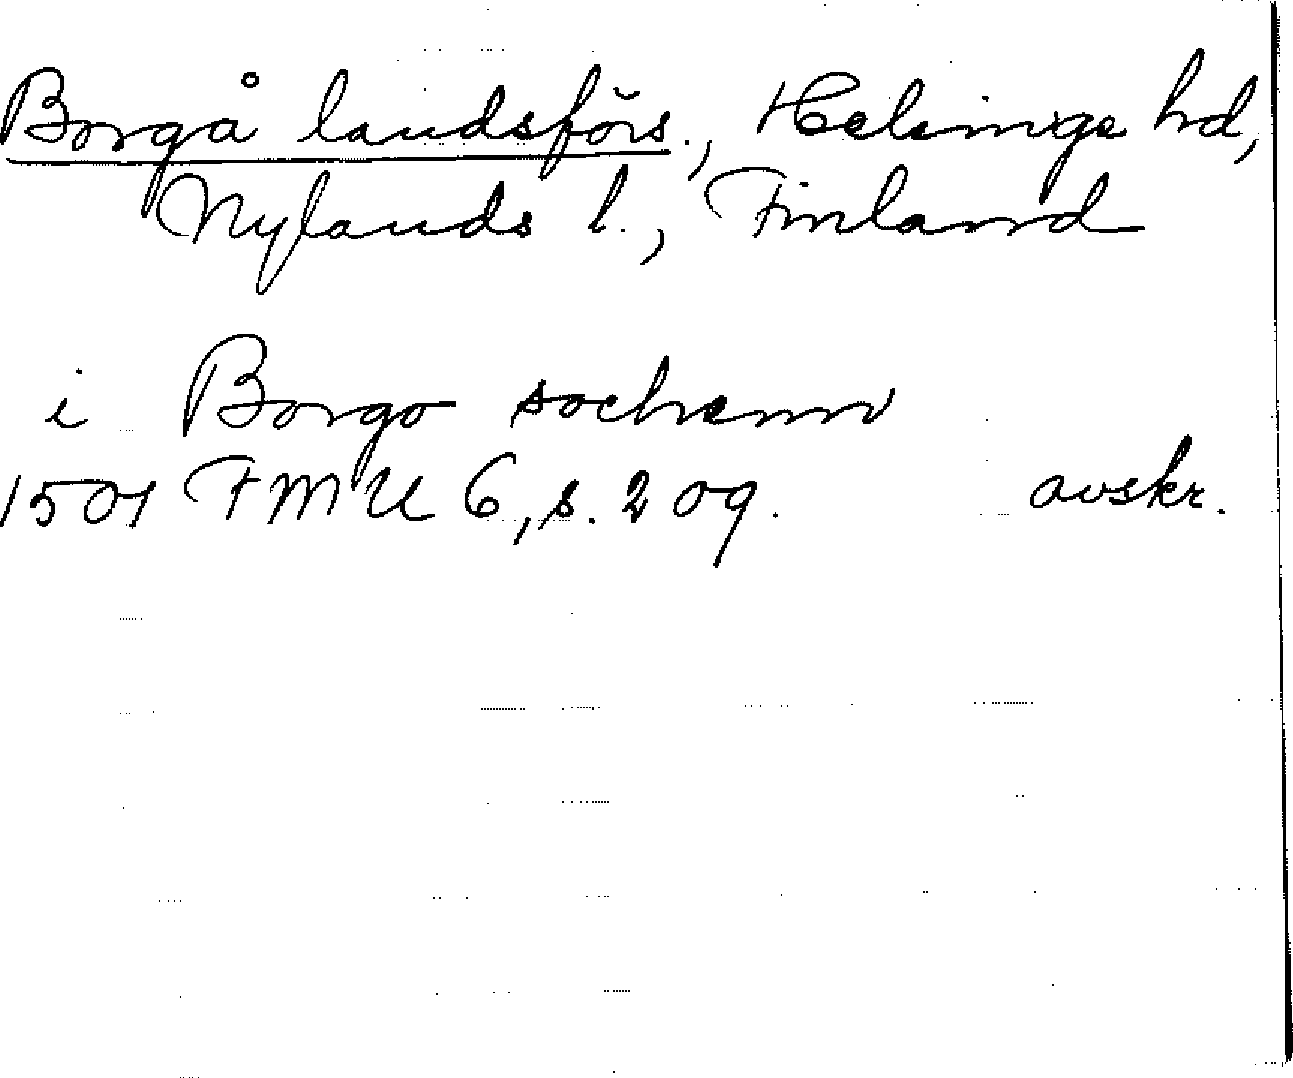 Borgå landsförs., Helsinge hd,
Nylands l., Finland
i Borgo sochenn
1501 FMU 6, s. 209. avskr.